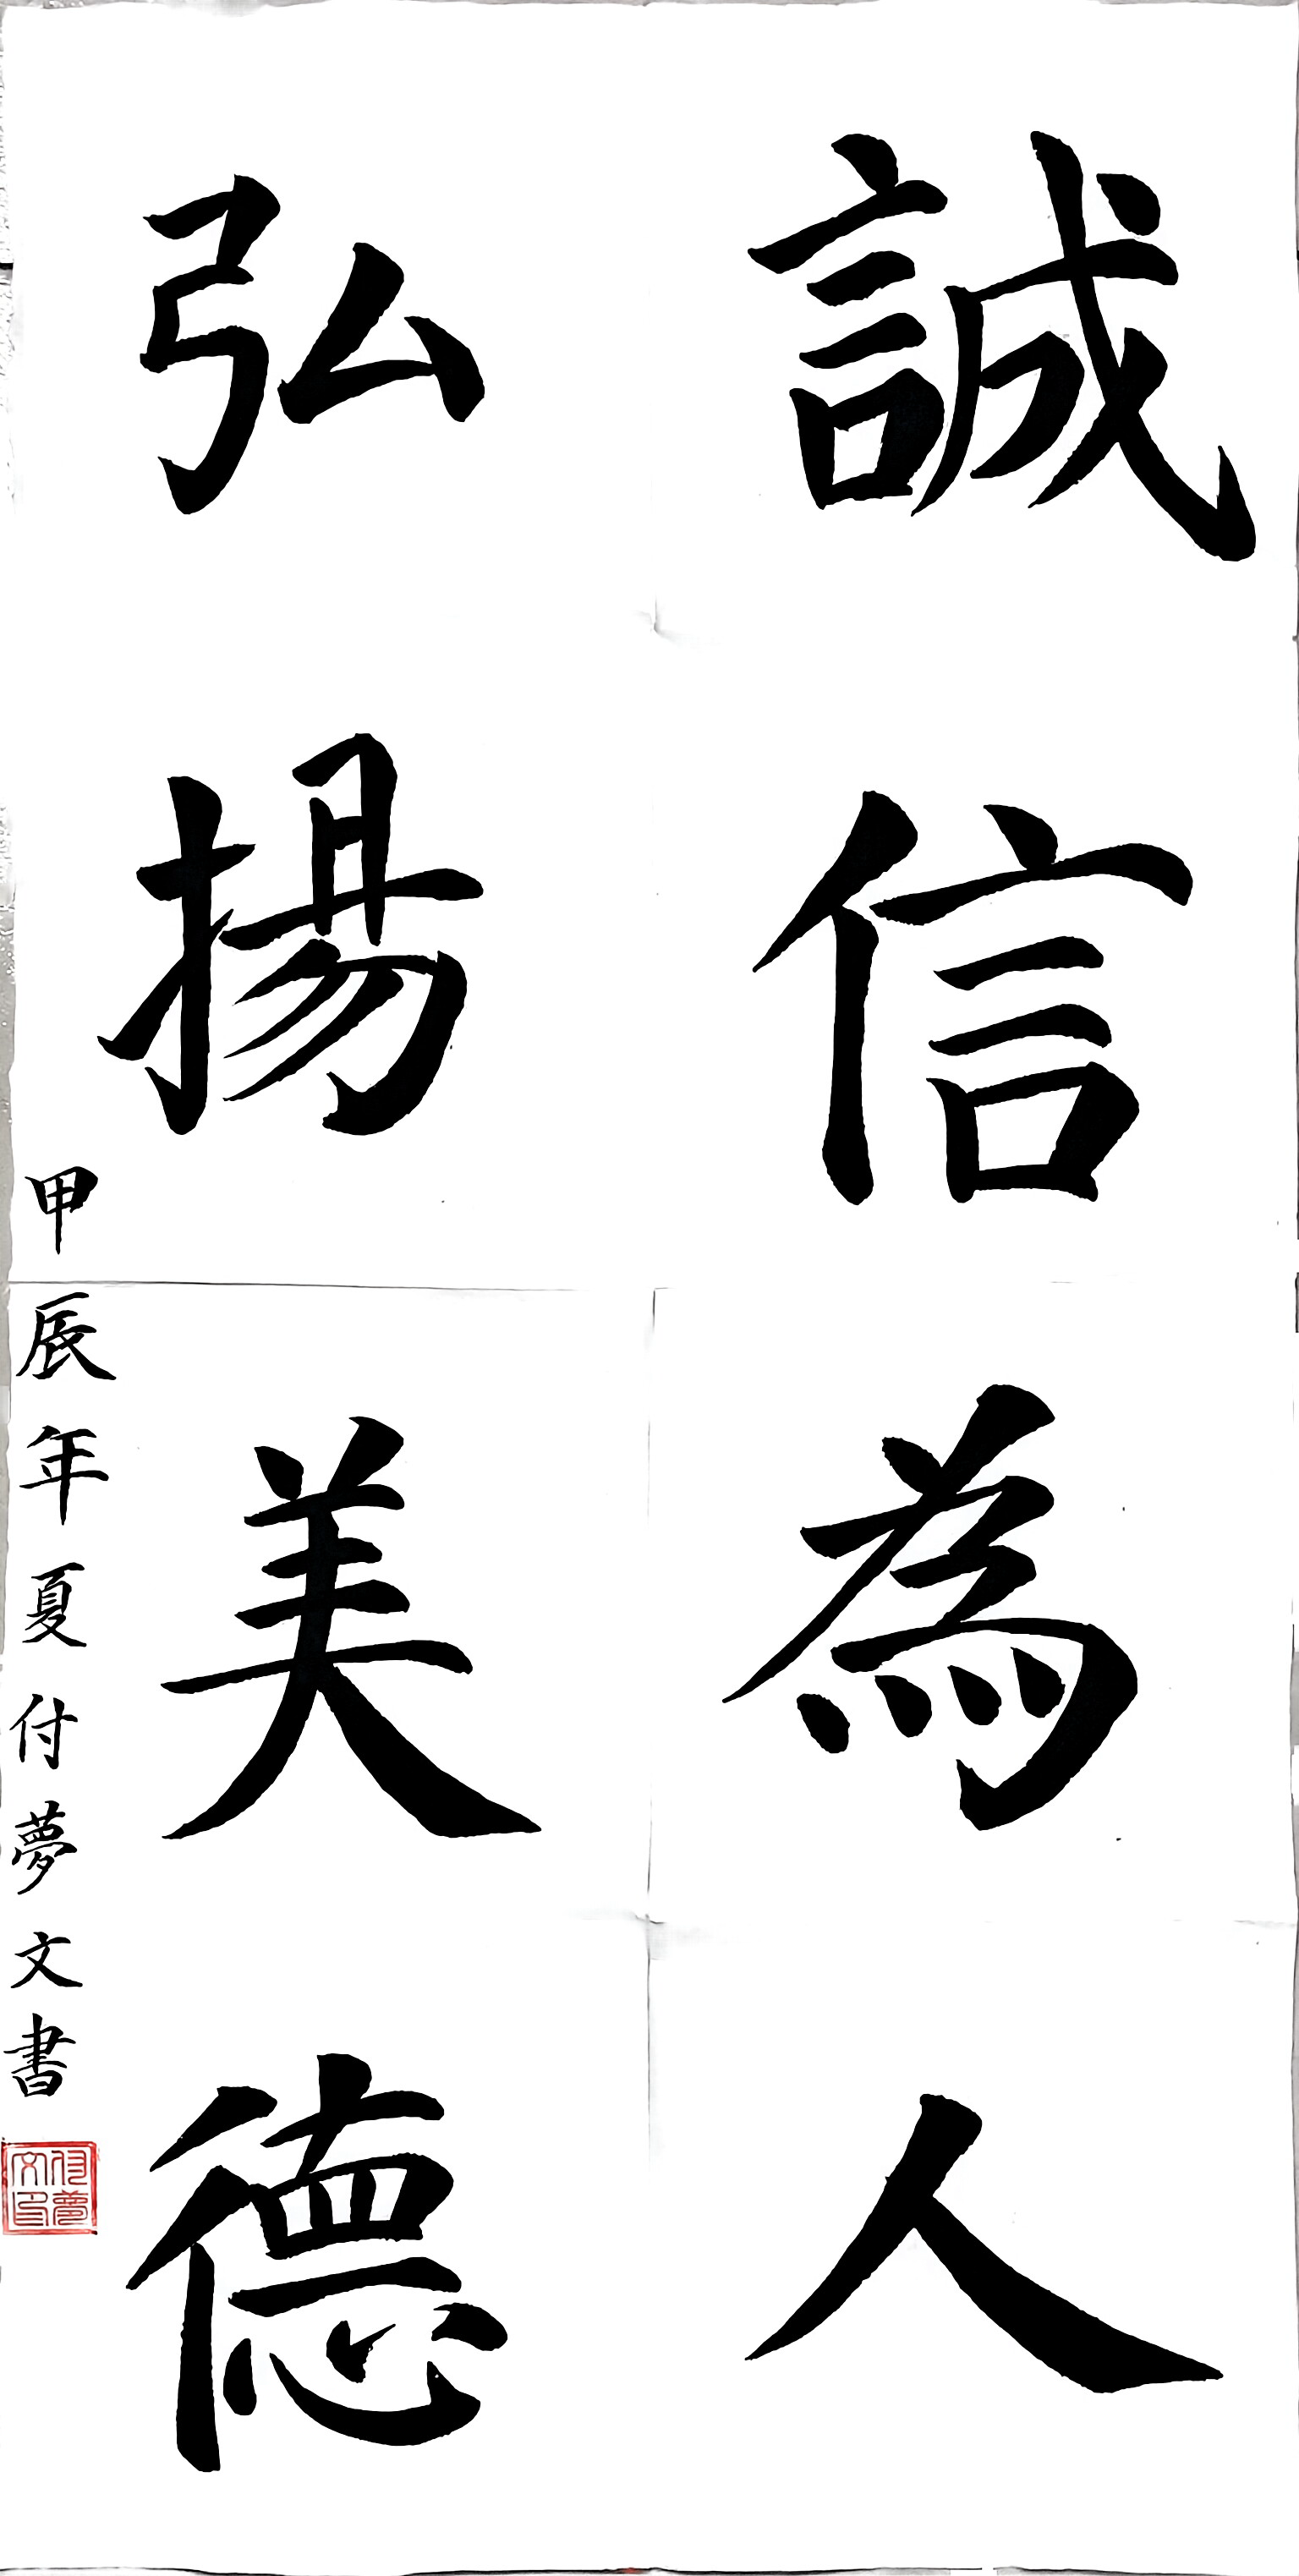 誠信為人
弘揚美德
甲辰年夏付夢文書
付夢文印